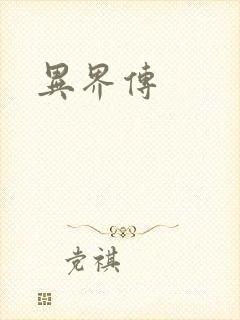 異界傳
党祺